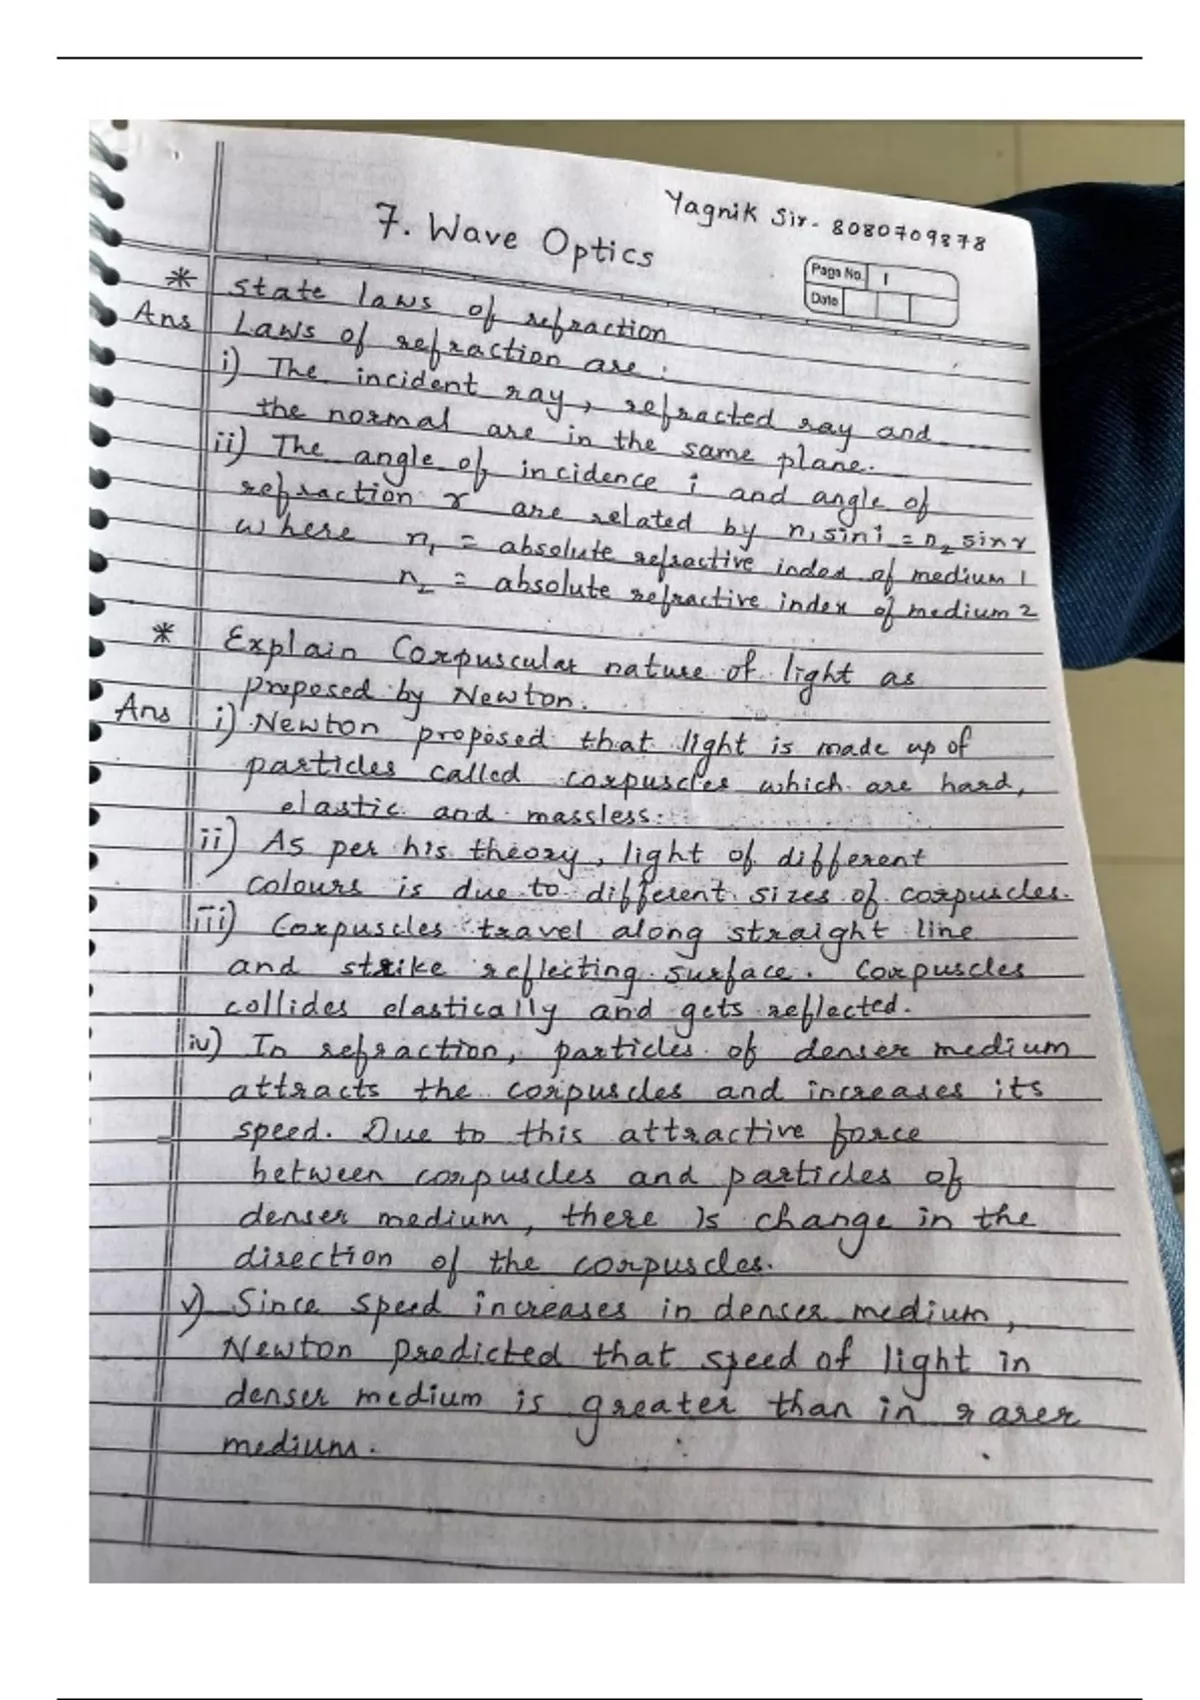 Yagnik Sir - 8080709878
7. Wave Optics
Page No. 1
Date
* State laws of refraction
Ans Laws of refraction are :
i) The incident ray, refracted ray and
the normal are in the same plane.
ii) The angle of incidence i and angle of
refraction r are related by n₁sini = n₂ sinr
where n₁ = absolute refractive index of medium 1
n₂ = absolute refractive index of medium 2
* Explain Corpuscular nature of light as
proposed by Newton.
Ans i) Newton proposed that light is made up of
particles called corpuscles which are hard,
elastic and massless.
ii) As per his theory, light of different
colours is due to different sizes of corpuscles.
iii) Corpuscles travel along straight line
and strike reflecting surface. Corpuscles
collides elastically and gets reflected.
iv) In refraction, particles of denser medium
attracts the corpuscles and increases its
speed. Due to this attractive force
between corpuscles and particles of
denser medium, there is change in the
direction of the corpuscles.
v) Since speed increases in denser medium,
Newton predicted that speed of light in
denser medium is greater than in rarer
medium.